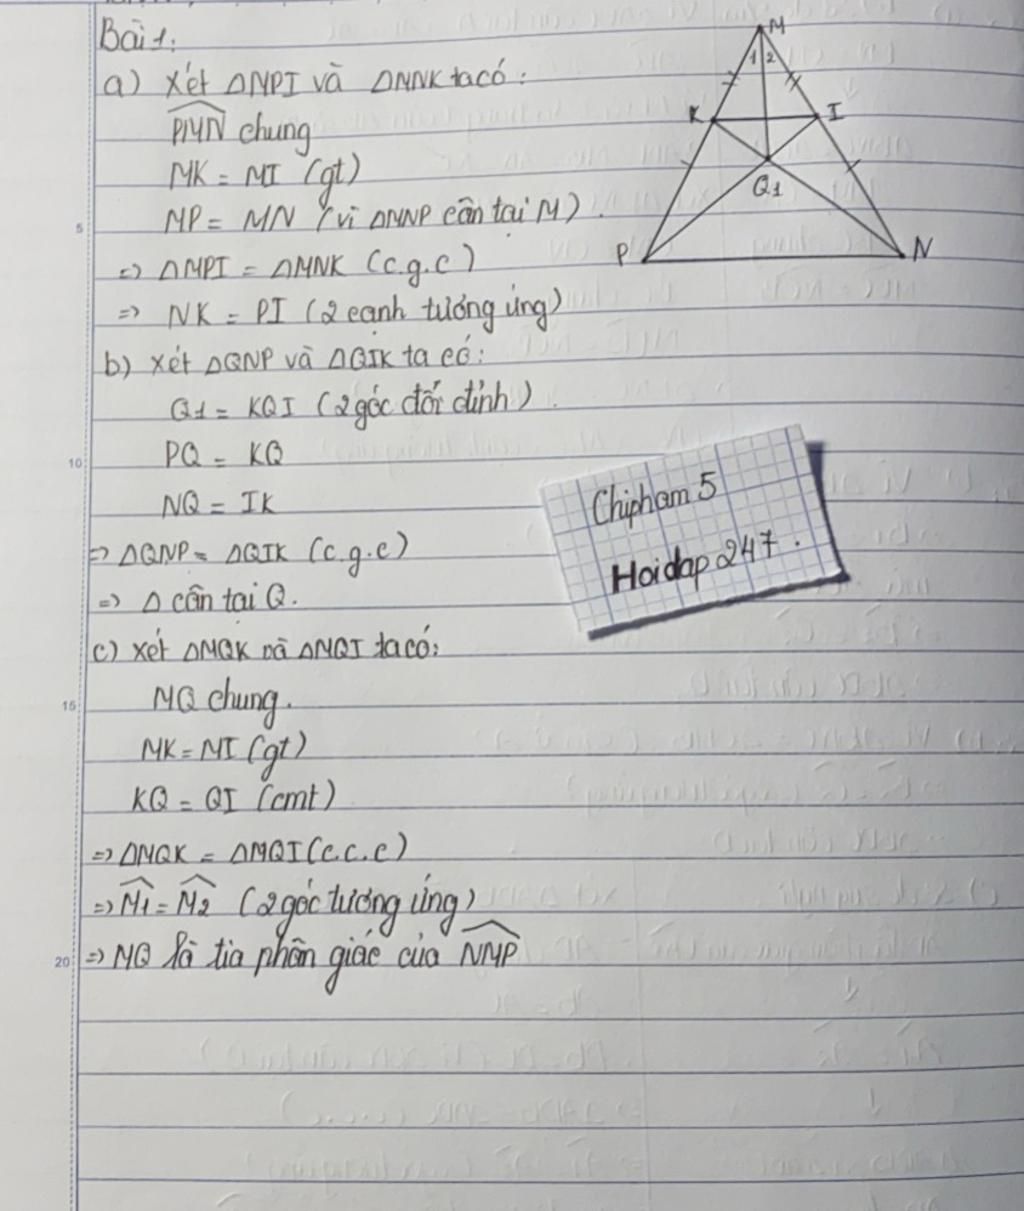 Bài 1:
a) Xét ΔMPI và ΔMNK ta có:
PMN chung
MK = MI (gt)
MP = MN (vì ΔMNP cân tại M).
=> ΔMPI = ΔMNK (c.g.c)
=> NK = PI (2 cạnh tương ứng)
b) Xét ΔQNP và ΔQIK ta có:
Q1 = KQI (2 góc đối đỉnh).
PQ = KQ
NQ = IK
=> ΔQNP = ΔQIK (c.g.c)
=> Δ cân tại Q.
c) Xét ΔMQK và ΔMQI ta có:
MQ chung.
MK = MI (gt)
KQ = QI (cmt)
=> ΔMQK = ΔMQI (c.c.c)
=> M1 = M2 (2 góc tương ứng)
=> MQ là tia phân giác của NMP
M
1 2
K I
Q1
P N
Chipham5
Hoidap247.
5
10
15
20